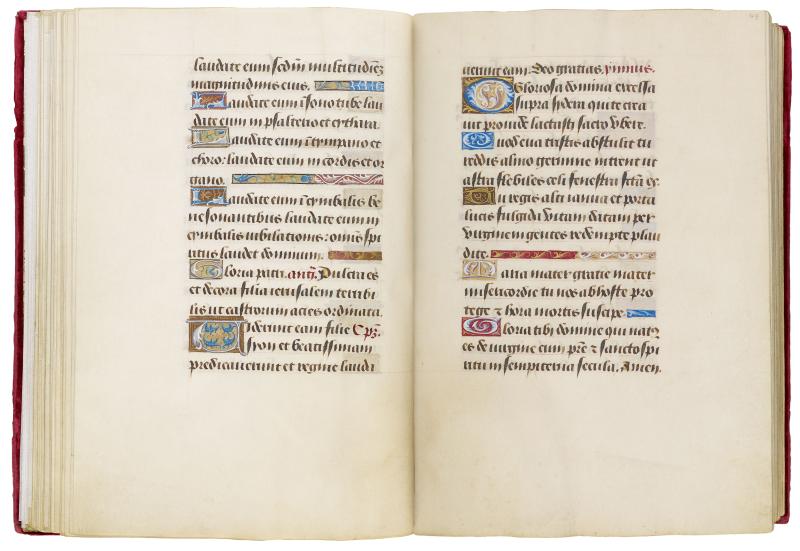 laudate eum scdm multitudinẽ
magnitudinis eius.
Laudate eum ĩ sono tube lau
date eum in psalterio et cythara.
Laudate eum ĩ tympano et
choro: laudate eum in cordis et or
gano.
Laudate eum ĩ cymbalis be
ne sonantibus laudate eum in
cymbalis iubilationis: omĩs spi
ritus laudet dominum.
Gloria patri. antĩ. Pulcra es
et decora filia ierusalem terribi
lis ut castrorum acies ordinata.
Viderunt eam filie Cpł.
syon et beatissimam
predicauerunt et regine laudi
uerunt eam. Deo gratias. ymnus.
O Gloriosa domina excelsa
supra sydera qui te crea
uit prouide lactasti sacro vbere.
Quod eua tristis abstulit tu
reddis almo germine intrent ut
astra flebiles celi fenestra fcã es
Tu regis alti ianua et porta
lucis fulgida vitam datam per
virginem gentes redempte plau
dite.
Maria mater gratie mater
misericordie tu nos ab hoste pro
tege et hora mortis suscipe.
Gloria tibi domine qui natꝰ
es de uirgine cum pr̃e et sancto spi
ritu in sempiterna secula. Amen.